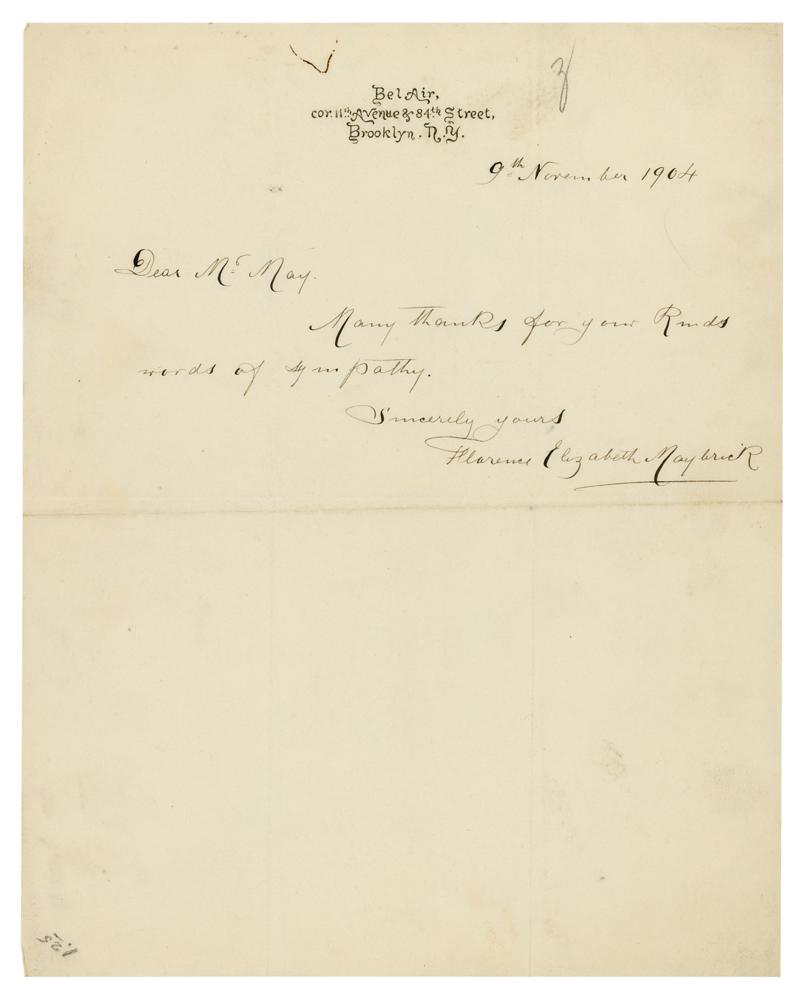 Bel Air,
cor. 11th Avenue & 84th Street,
Brooklyn, N.Y.
9th November 1904
Dear Mr May.
Many thanks for your Kinds
words of sympathy.
Sincerely yours
Florence Elizabeth Maybrick
1.25